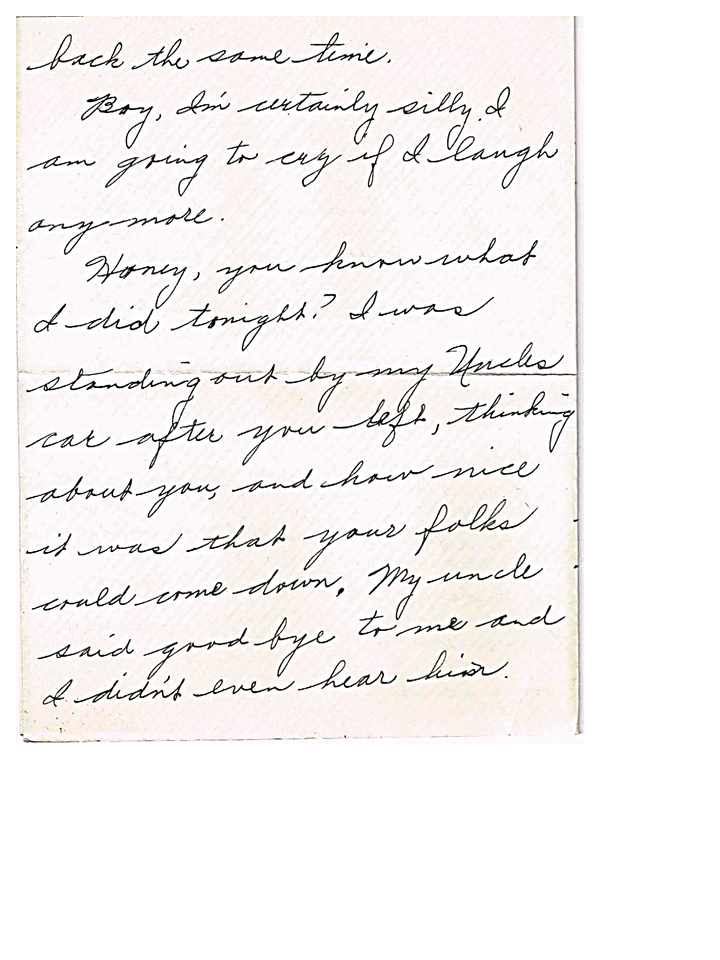 back the same time.
Boy, I'm certainly silly. I
am going to cry if I laugh
any more.
Honey, you know what
I did tonight? I was
standing out by my Uncles
car after you left, thinking
about you, and how nice
it was that your folks
could come down. My uncle
said good bye to me and
I didn't even hear him.